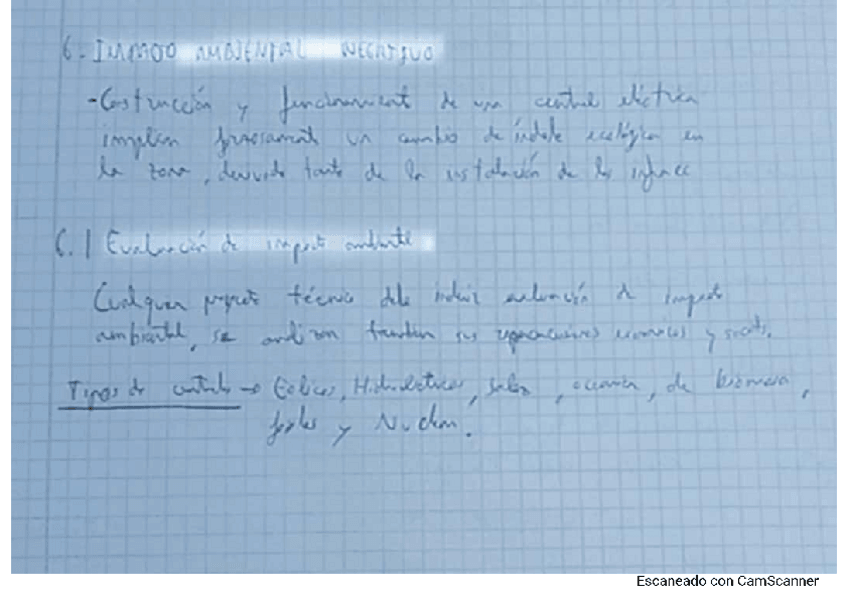 6. IMPACTO AMBIENTAL NEGATIVO
- Construcción y funcionamient de una central eléctrica
implican forzosament un cambio de índole ecológica en
la zona, derivado tanto de la instalación de las infraec
6.1 Evaluación de impacto ambiental
Cualquier proyecto técnico debe incluir evaluación de impacto
ambiental, se analizan también sus repercusiones económicas y sociales.
Tipos de centrales → Eólicas, Hidroeléctricas, solar, oceánica, de biomasa,
fósiles y Nuclear.
Escaneado con CamScanner